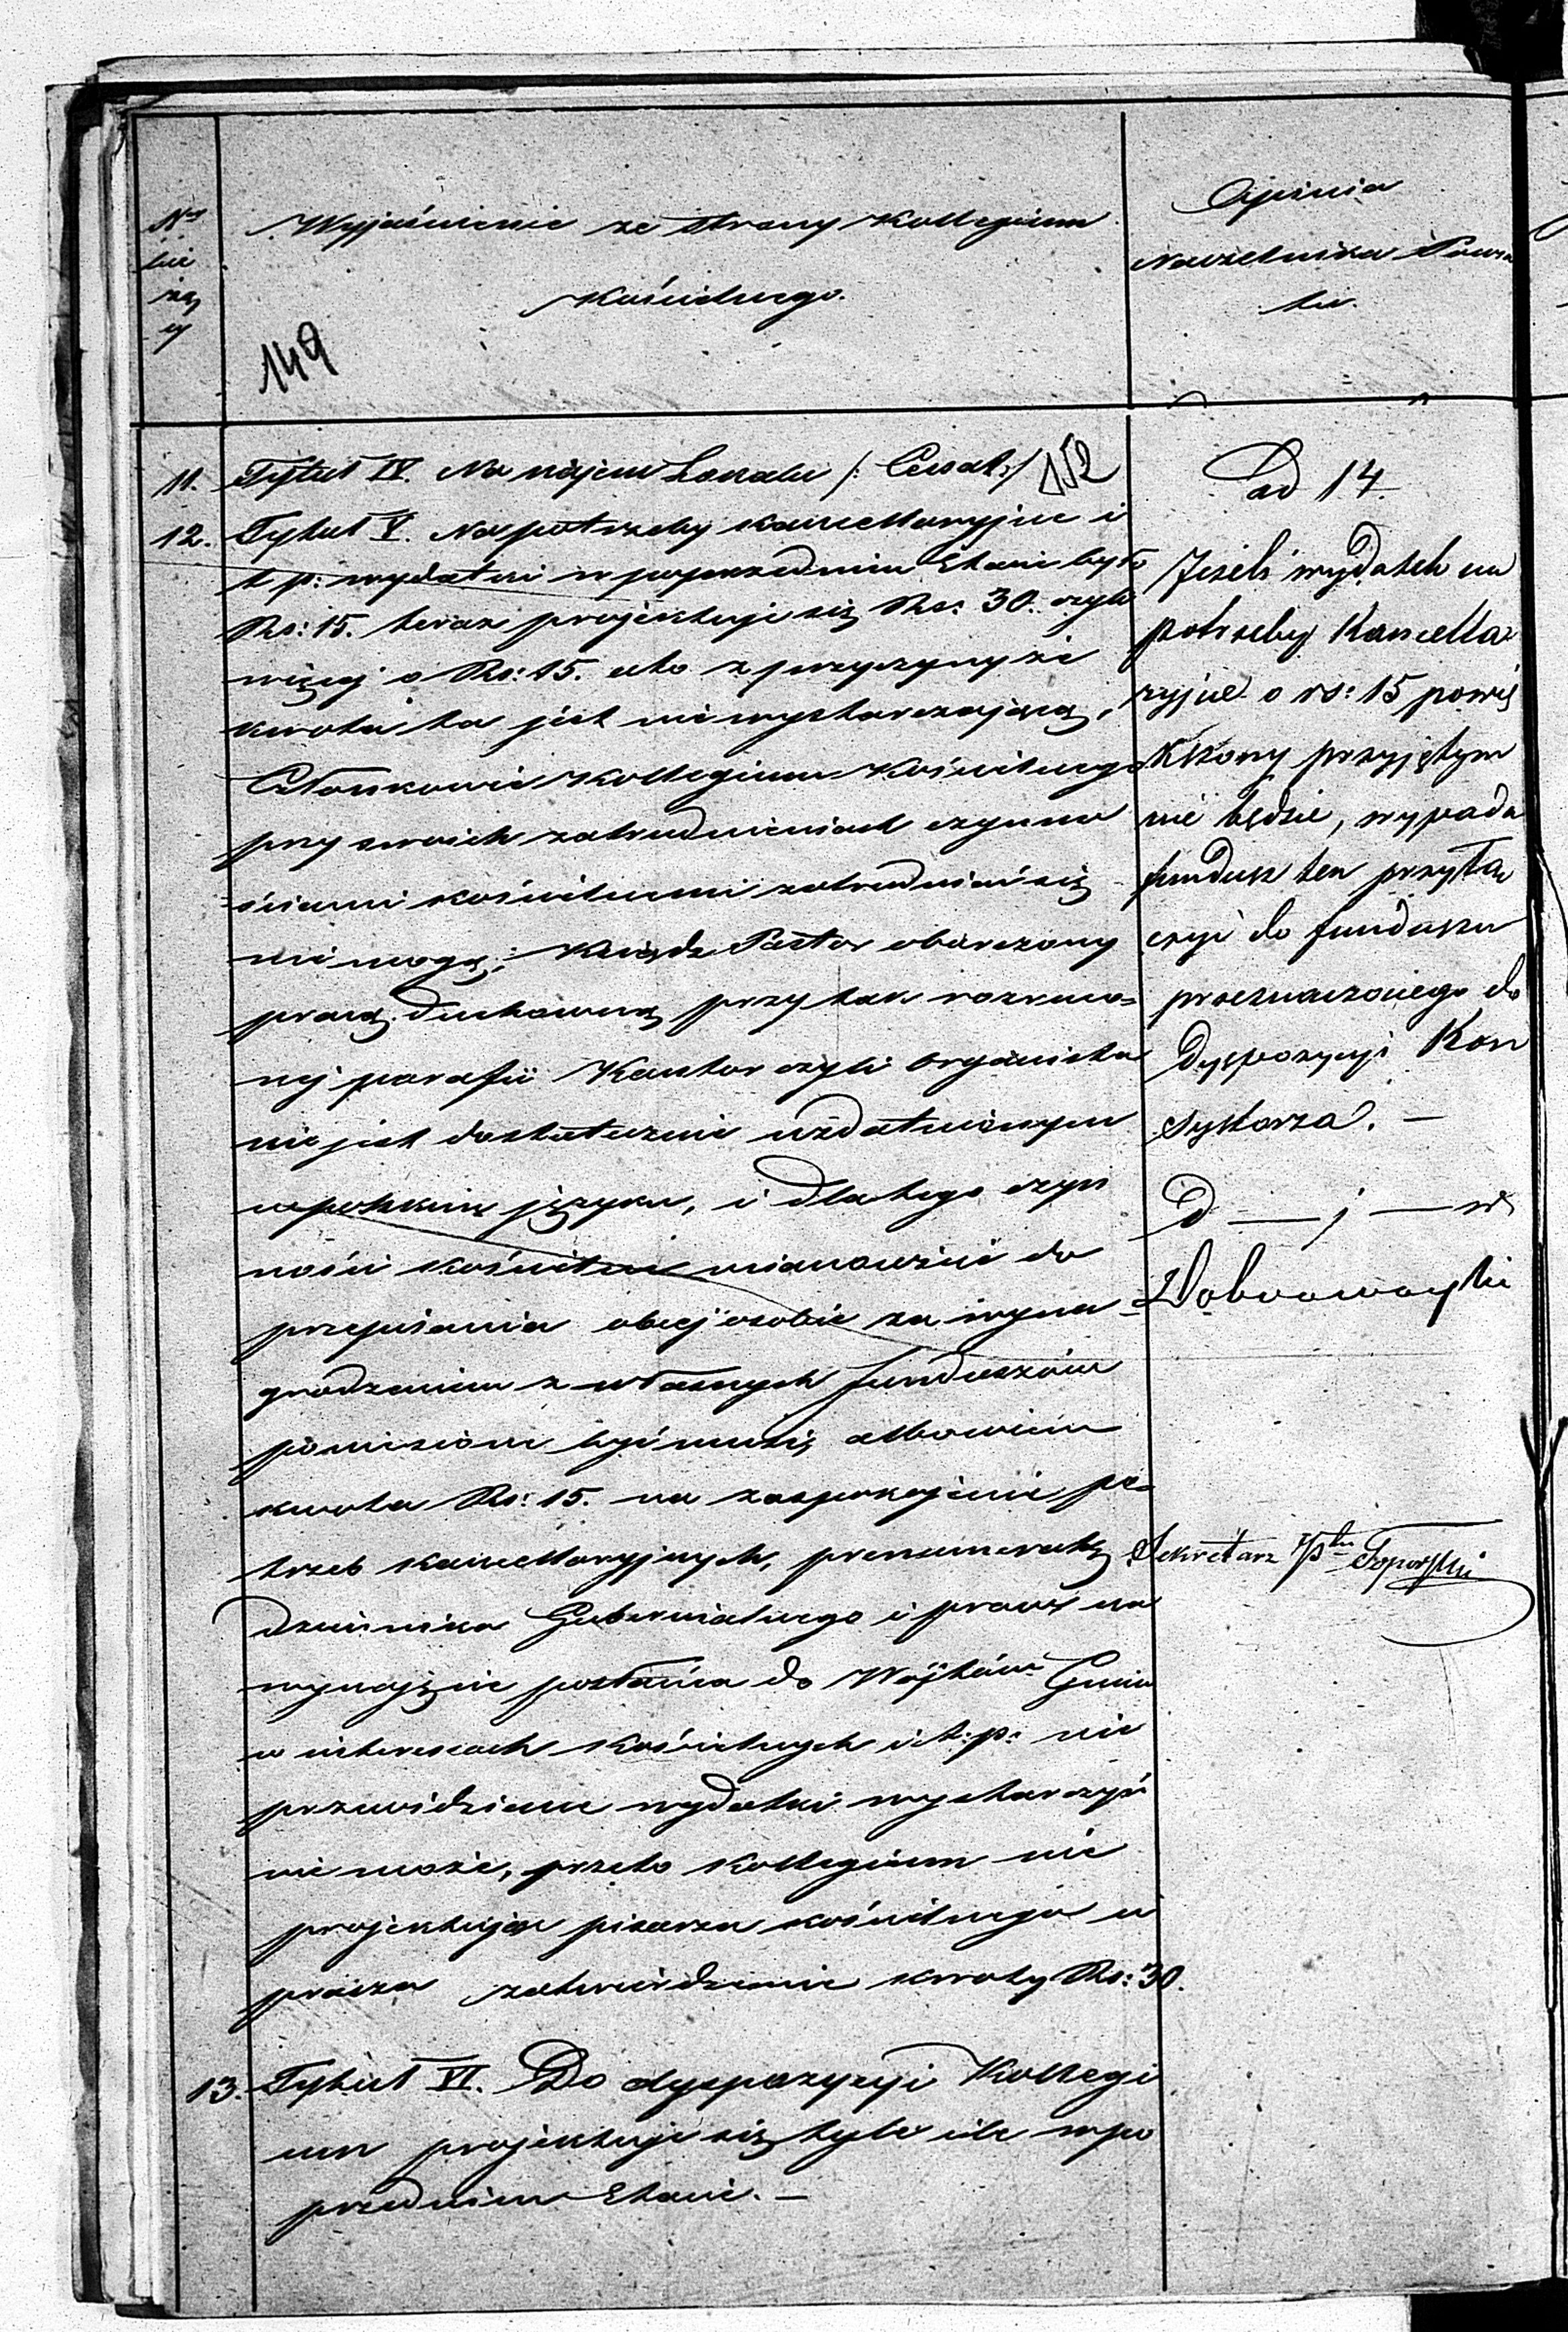 Nro
bie
żą
cy
Wyjaśnienie ze strony Kollegium
Kościelnego.
149
Opinia
Naczelnika Powia
tu.
11. Tytuł IV. Na najem Lokalu /: Cessat :/ 152
12. Tytuł V. Na potrzeby kancellaryjne i
t p: wydatki w poprzednim Etacie było
Rs: 15. teraz projektuje się Rs: 30. czyli
więcej o Rs: 15. a to z przyczyny że
kwota ta jest niewystarczającą,
Członkowie Kollegium Kościelnego
przy swoich zatrudnieniach czynno
ściami kościelnemi zatrudniać się
nie mogą; Ksiądz Pastor obarczony
pracą duchowną przy tak rozcią=
nej parafii Kantor czyli organista
nie jest dostatecznie uzdatnionym
w polskim języku, i dlatego czyn
ności kościelne mianowicie do
przepisania obcej osobie za wyna=
grodzeniem z własnych funduszów
powierzone być muszą albowiem
kwota Rs: 15. na zaspokojenie po=
trzeb kancellaryjnych, prenumeratę
dziennika Gubernialnego i praw na
wynajęcie posłańca do Wójtów Gmin
w interesach kościelnych i t: p: nie
przewidziane wydatki wystarczyć
nie może, przeto Kollegium nie
projektując pisarza kościelnego u
prasza zatwierdzenie kwoty Rs: 30.
13. Tytuł VI. Do dyspozycyi Kollegi
um projektuje się tyle ile w po
przednim Etacie. —
Ad 14.
Jeżeli wydatek na
potrzeby Kancella
ryjne o rs: 15 powię
kszony przyjętym
nie będzie, wypada
fundusz ten przyłą
czyć do funduszu
przeznaczonego do
dyspozycyi Kon
systorza. —
D — j — w
Dobrowolski
Sekretarz Ptu Toporski